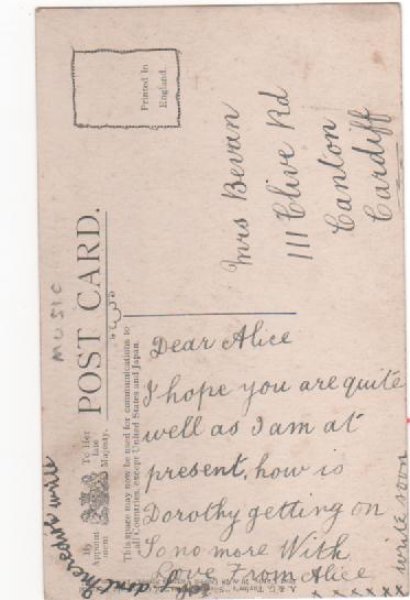 MUSIC
POST CARD.
Printed in
England.
By
Appoint
ment
To Her
late
Majesty.
This space may now be used for communications to
all Countries, except United States and Japan.
Mrs Bevan
111 Clive Rd
Canton
Cardiff
Dear Alice
I hope you are quite
well as I am at
present, how is
Dorothy getting on
So no more With
Love From Alice
x x x x x x write soon